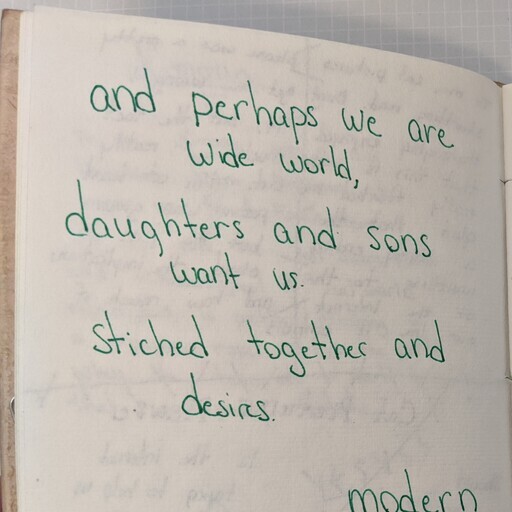 and perhaps we are
wide world,
daughters and sons
want us.
stiched together and
desires.
modern